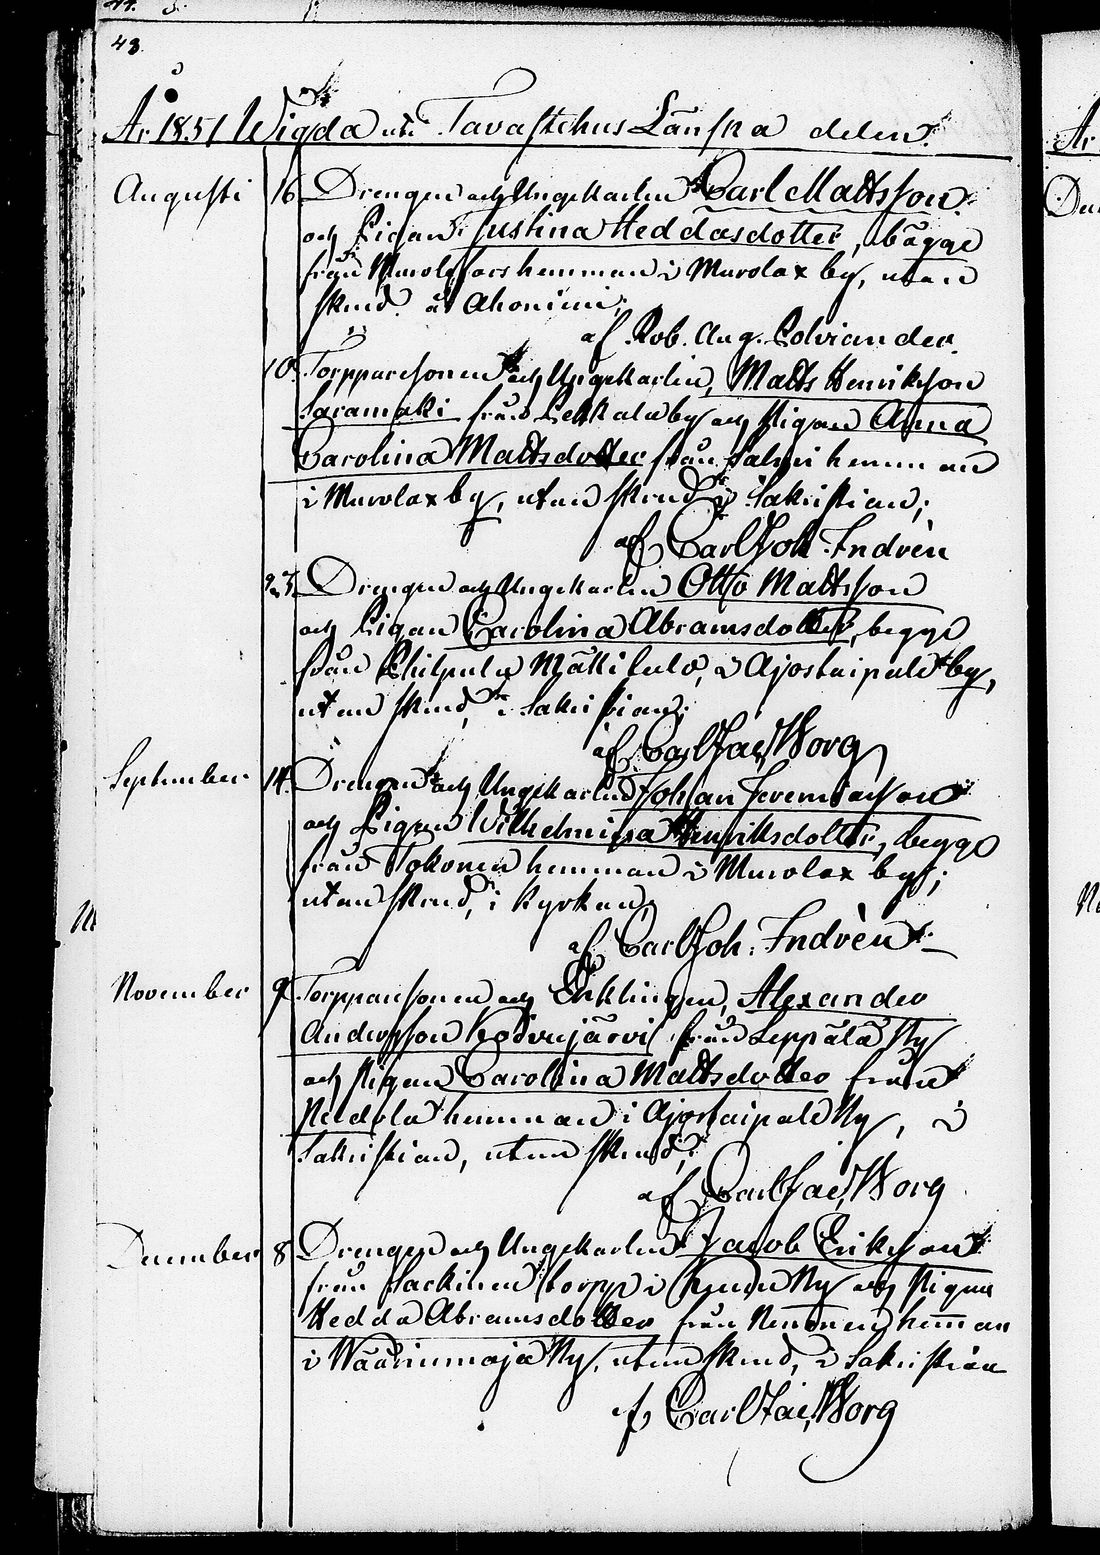 43.
År 1851 Wigda uti Tavastehus Länska delen.
Augusti 16. Drengen och Ungekarlen Carl Mattsson
och Pigan Justina Heddasdotter, bägge
från Murole fors hemman i Murolax by, utan
skud. å Ahoniemi;
af Rob. Aug. Polviander.
10. Torpparesonen och Ungekarlen, Matts Henriksson
Saramäki från Pekkala by och Pigan Anna
Carolina Mattsdotter från Salmi hemman
i Murolax by, utan skud i Sakristian;
af Carl Joh. Indrèn
23. Drengen och Ungekarlen Otto Mattsson
och Pigan Carolina Abramsdotter, begge
från Mäkilulo, i Ajostaipale by,
utan skud, i Sakristian;
af Carl Jac. Worg
September 14. Drengen och Ungekarlen Johan Jeremiasson
och Pigan Wilhelmina Henriksdotter, begge
från Tokonen hemman i Murolax by;
utan skud, i Kyrkan;
af Carl Joh. Indrèn
November 9. Torpparesonen och Enklingen, Alexander
Andersson Koivujärvi från Leppälä By
och Pigan Carolina Mattsdotter från
hemman i Ajostaipale By, i
Sakristian, utan skud;
af Carl Jac. Worg
December 8 Drengen och Ungekarlen Jacob Eriksson
från torpp i By och Pigan
Hedda Abramsdotter från Nenonen hem̄an
i Wäärinmaja By, utan skud, i Sakristian
af Carl Jac. Worg